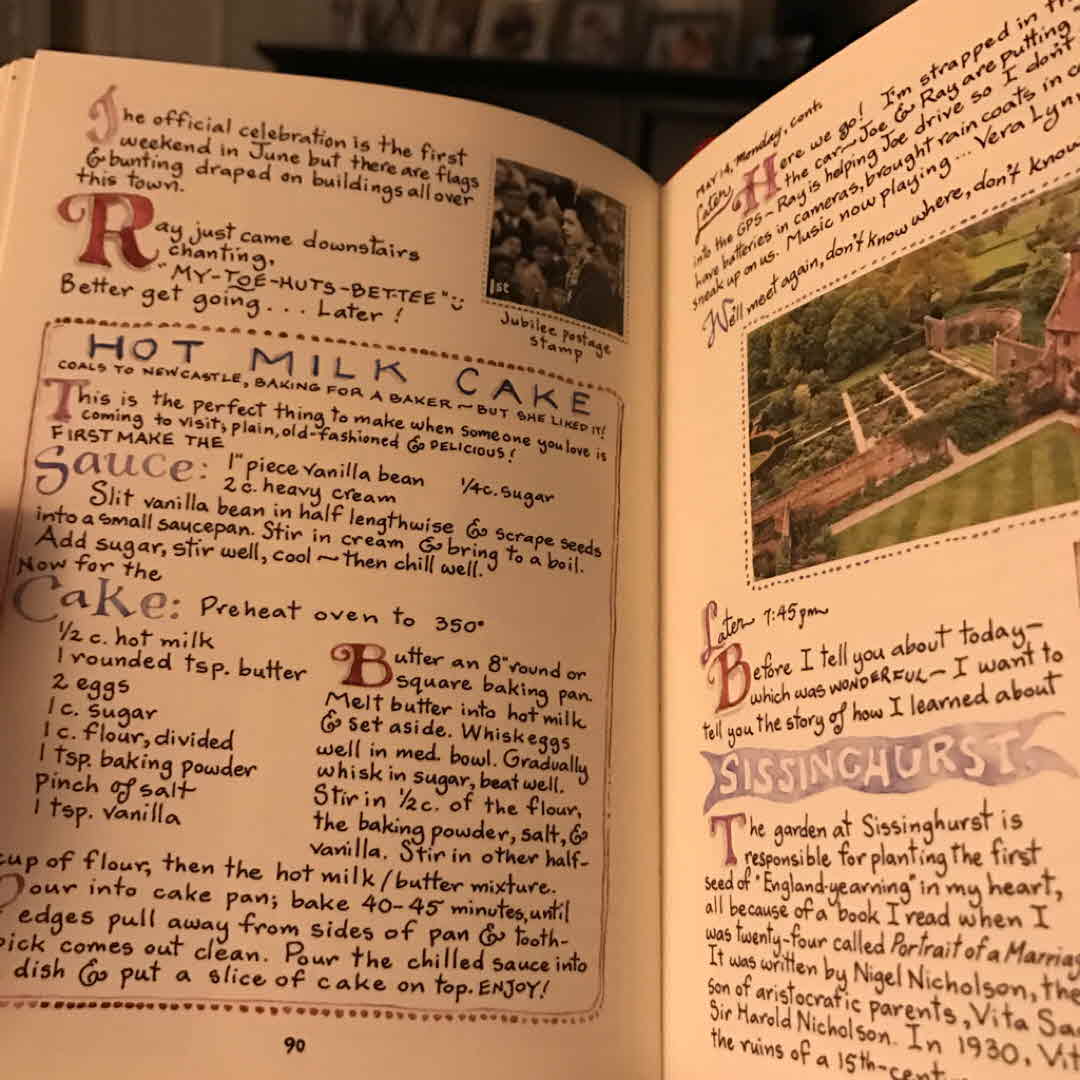 The official celebration is the first
weekend in June but there are flags
& bunting draped on buildings all over
this town.
1st
Jubilee postage
stamp
Ray just came downstairs
chanting,
"MY-TOE-HUTS-BET-TEE"
Better get going... Later!
HOT MILK CAKE
COALS TO NEWCASTLE, BAKING FOR A BAKER ~ BUT SHE LIKED IT!
This is the perfect thing to make when someone you love is
coming to visit; plain, old-fashioned & DELICIOUS!
FIRST MAKE THE
Sauce: 1" piece vanilla bean 1/4 c. sugar
2 c. heavy cream
Slit vanilla bean in half lengthwise & scrape seeds
into a small saucepan. Stir in cream & bring to a boil.
Add sugar, stir well, cool ~ then chill well.
Now for the
Cake: Preheat oven to 350°
1/2 c. hot milk
1 rounded tsp. butter
2 eggs
1 c. sugar
1 c. flour, divided
1 tsp. baking powder
Pinch of salt
1 tsp. vanilla
Butter an 8" round or
square baking pan.
Melt butter into hot milk
& set aside. Whisk eggs
well in med. bowl. Gradually
whisk in sugar, beat well.
Stir in 1/2 c. of the flour,
the baking powder, salt, &
vanilla. Stir in other half-
cup of flour, then the hot milk/butter mixture.
Pour into cake pan; bake 40-45 minutes, until
edges pull away from sides of pan & tooth-
pick comes out clean. Pour the chilled sauce into
dish & put a slice of cake on top. ENJOY!
90
MAY 14, Monday, cont.
Later Here we go! I'm strapped in
the car ~ Joe & Ray are putting
into the GPS ~ Ray is helping Joe drive so I don't
have batteries in cameras, brought rain coats in
sneak up on us. Music now playing... Vera Lynn
We'll meet again, don't know where, don't know
Later 7:45 pm
Before I tell you about today—
which was WONDERFUL— I want to
tell you the story of how I learned about
SISSINGHURST.
The garden at Sissinghurst is
responsible for planting the first
seed of "England-yearning" in my heart,
all because of a book I read when I
was twenty-four called Portrait of a Marriag
It was written by Nigel Nicholson, the
son of aristocratic parents, Vita Sac
Sir Harold Nicholson. In 1930, Vit
the ruins of a 15th-cent